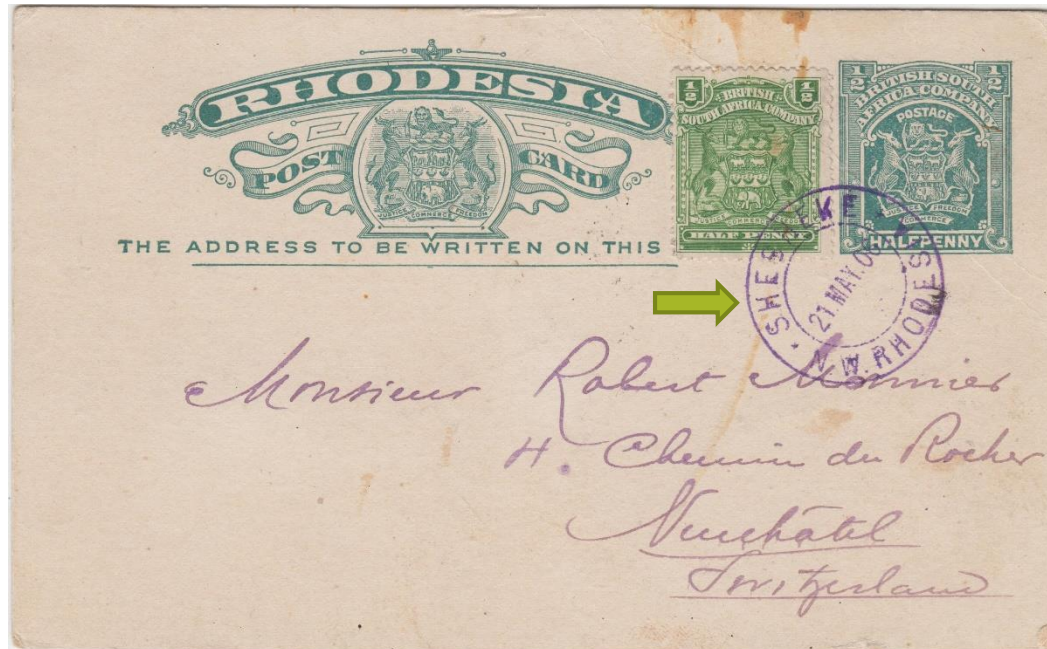 RHODESIA
POST CARD
JUSTICE COMMERCE FREEDOM
THE ADDRESS TO BE WRITTEN ON THIS
1/2 1/2
BRITISH
SOUTH AFRICA COMPANY
JUSTICE COMMERCE FREEDOM
HALF PENNY
1/2 1/2
BRITISH SOUTH
AFRICA COMPANY
POSTAGE
JUSTICE FREEDOM
COMMERCE
HALFPENNY
SHESHEKE
21 MAY.
N.W. RHODES
Monsieur Robert Monnier
4. Chemin du Rocher
Neuchâtel
Switzerland